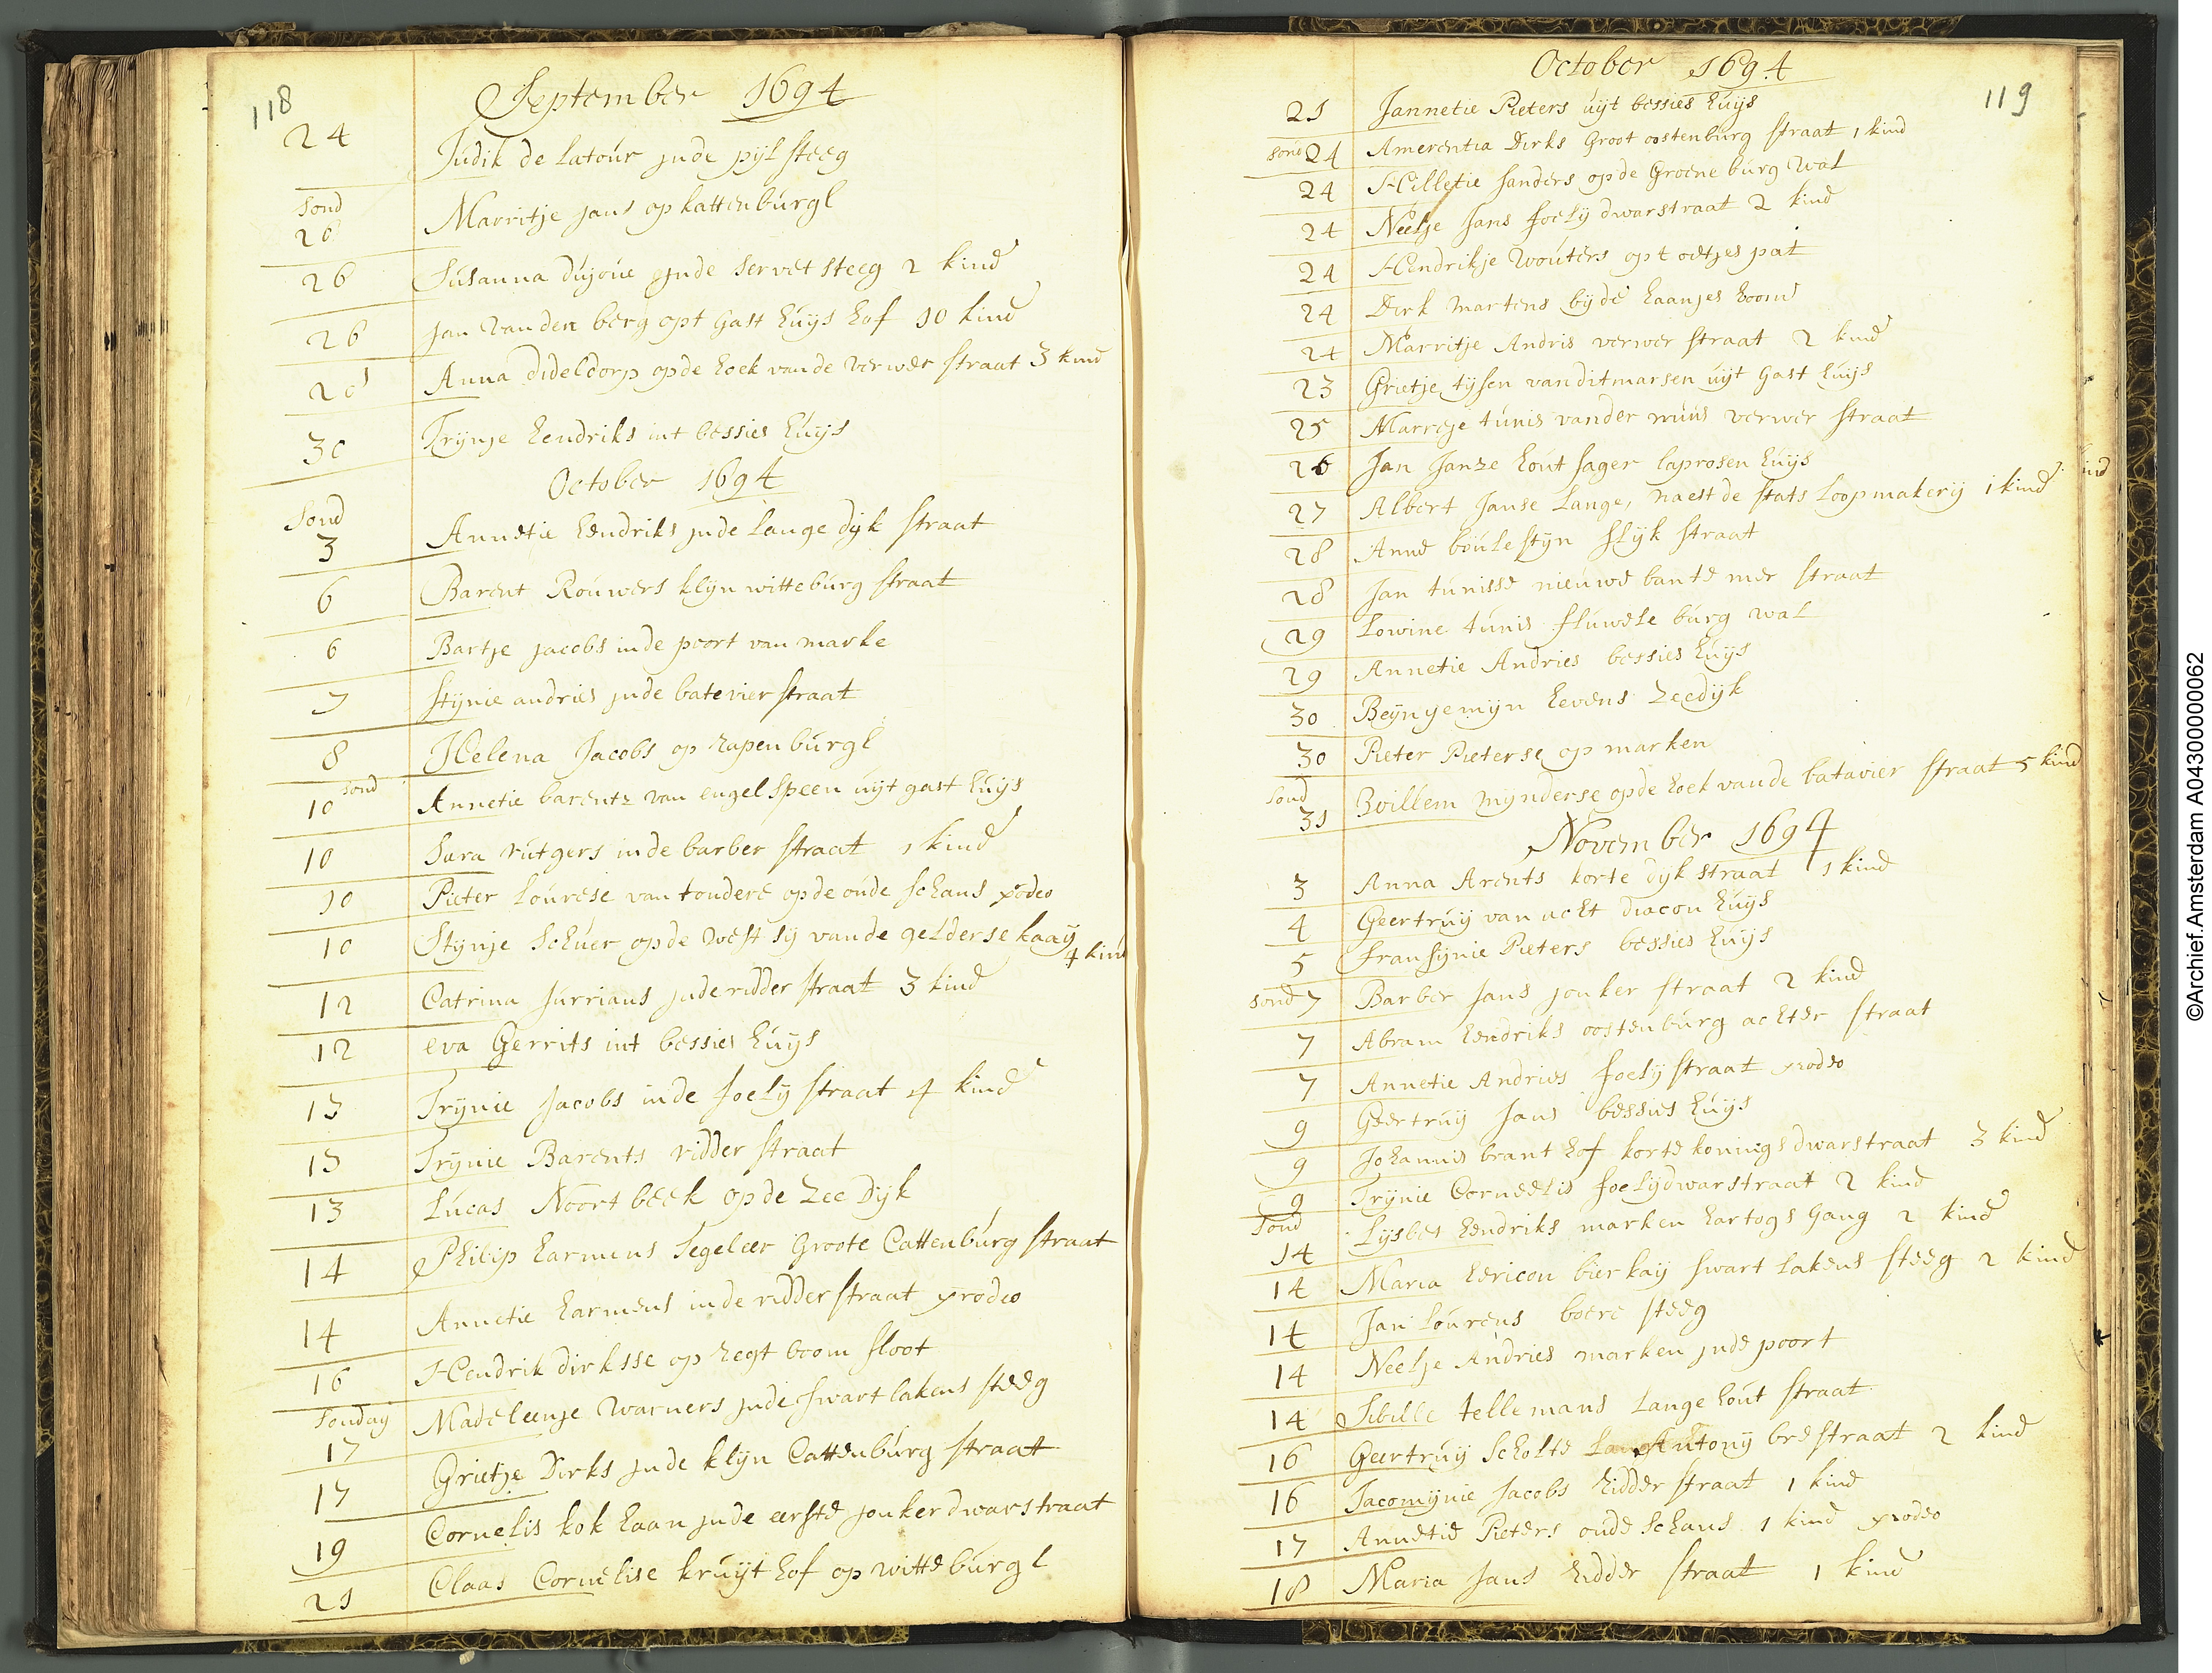 118
September 1694
24 Judik de latour jnde pijl steeg
sond
26 Marritje jans op kattenburgh
26 Susanna dujoue jnde servet steeg 2 kind
26 jan van den berg opt gast huijs hof 10 kind
28 Anna dideldorp opde hoek vande verwer straat 3 kind
30 Trijnje hendriks int bessies huijs
October 1694
Sond
3 Annetie hendriks jnde lange dijk straat
6 Barent Rouwers klijn witteburg straat
6 Bartje jacobs inde poort van marke
7 Stijnie andries jnde batevier straat
8 Helena Jacobs op rapenburgh
sond
10 Annetie barentz van engelsteen uijt gast huijs
10 Sara rutgers inde barber straat 1 kind
10 Pieter lourese van tondere opde oude schans prodeo
10 Stijnje schuer opde west sij vande gelderse kaaij
4 kind
12 Catrina jurrians jnde ridder straat 3 kind
12 eva Gerrits int bessies huijs
13 Trijnie Jacobs inde foelij straat 4 kind
13 Trijnie Barents ridder straat
13 Lucas Noortbeek opde Zee Dijk
14 Philip harmens Segeleer Groote Cattenburg straat
14 Annetie harmens inde ridder straat prodeo
16 Hendrik dirksse op regt boom sloot
Sonday
17 Madeleenje warners jnde swart lakens steeg
17 Grietje Dirks jnde klijn Cattenburg straat
19 Cornelis kok haan jnde eerste jonker dwarstraat
21 Claas Cornelise kruijt hof op witteburgh
119
October 1694
21 Jannetie Pieters uijt bessies huijs
sond 24 Amerentia Dirks Groot oostenburg straat 1 kind
24 Hilletie sanders opde Groene burg wal
24 Neeltje Jans foelij dwarstraat 2 kind
24 Hendrikje wouters opt oetjes pat
24 Dirk martens bij de haanjes boom
24 Marritje Andris verwer straat 2 kind
23 Grietje tijsen van ditmarsen uijt gast huijs
25 Marreje tunis vander muus verwer straat
26 Jan Janze hout sager laprosen huijs
27 Albert Janse Lange, naest de stats loopmakerij 1 kind
28 Anne boulestijn slijk straat
28 Jan tunisse nieuwe bantemer straat
29 Lowine tunis fluwele burg wal
29 Annetie Andries bessies huijs
30 Beijnjemijn hevens zeedijk
30 Pieter Pieterse op marken
Sond
31 Willem mijnderse opde hoek vande batavier straat 5 kind
November 1694
3 Anna Arents korte dijk straat 1 kind
4 Geertruij van acht diacon huijs
5 fransijnie Pieters bessies huijs
sond 7 Barber Jans jonker straat 2 kind
7 Abram hendriks oostenburg achter straat
7 Annetie Andries foelij straat prodeo
9 Geertruij Jans bessies huijs
9 Johannis brant hof korte konings dwarstraat 3 kind
9 Trijnie Corneelis foelijdwarstraat 2 kind
Sond
14 Lijsbet hendriks marken hartogs Gang 2 kind
14 Maria hericon bierkaij swart lakens steeg 2 kind
14 Jan Lourens boere steeg
14 Neeltje Andries marken jnde poort
14 Sibille tellemans Lange hout straat
16 Geertruij Scholte Antonij brestraat 2 kind
16 Jacomijnie Jacobs Ridder straat 1 kind
17 Annetie Pieters oude Schans 1 kind prodeo
18 Maria Jans Ridder straat 1 kind
©Archief.Amsterdam A04300000062